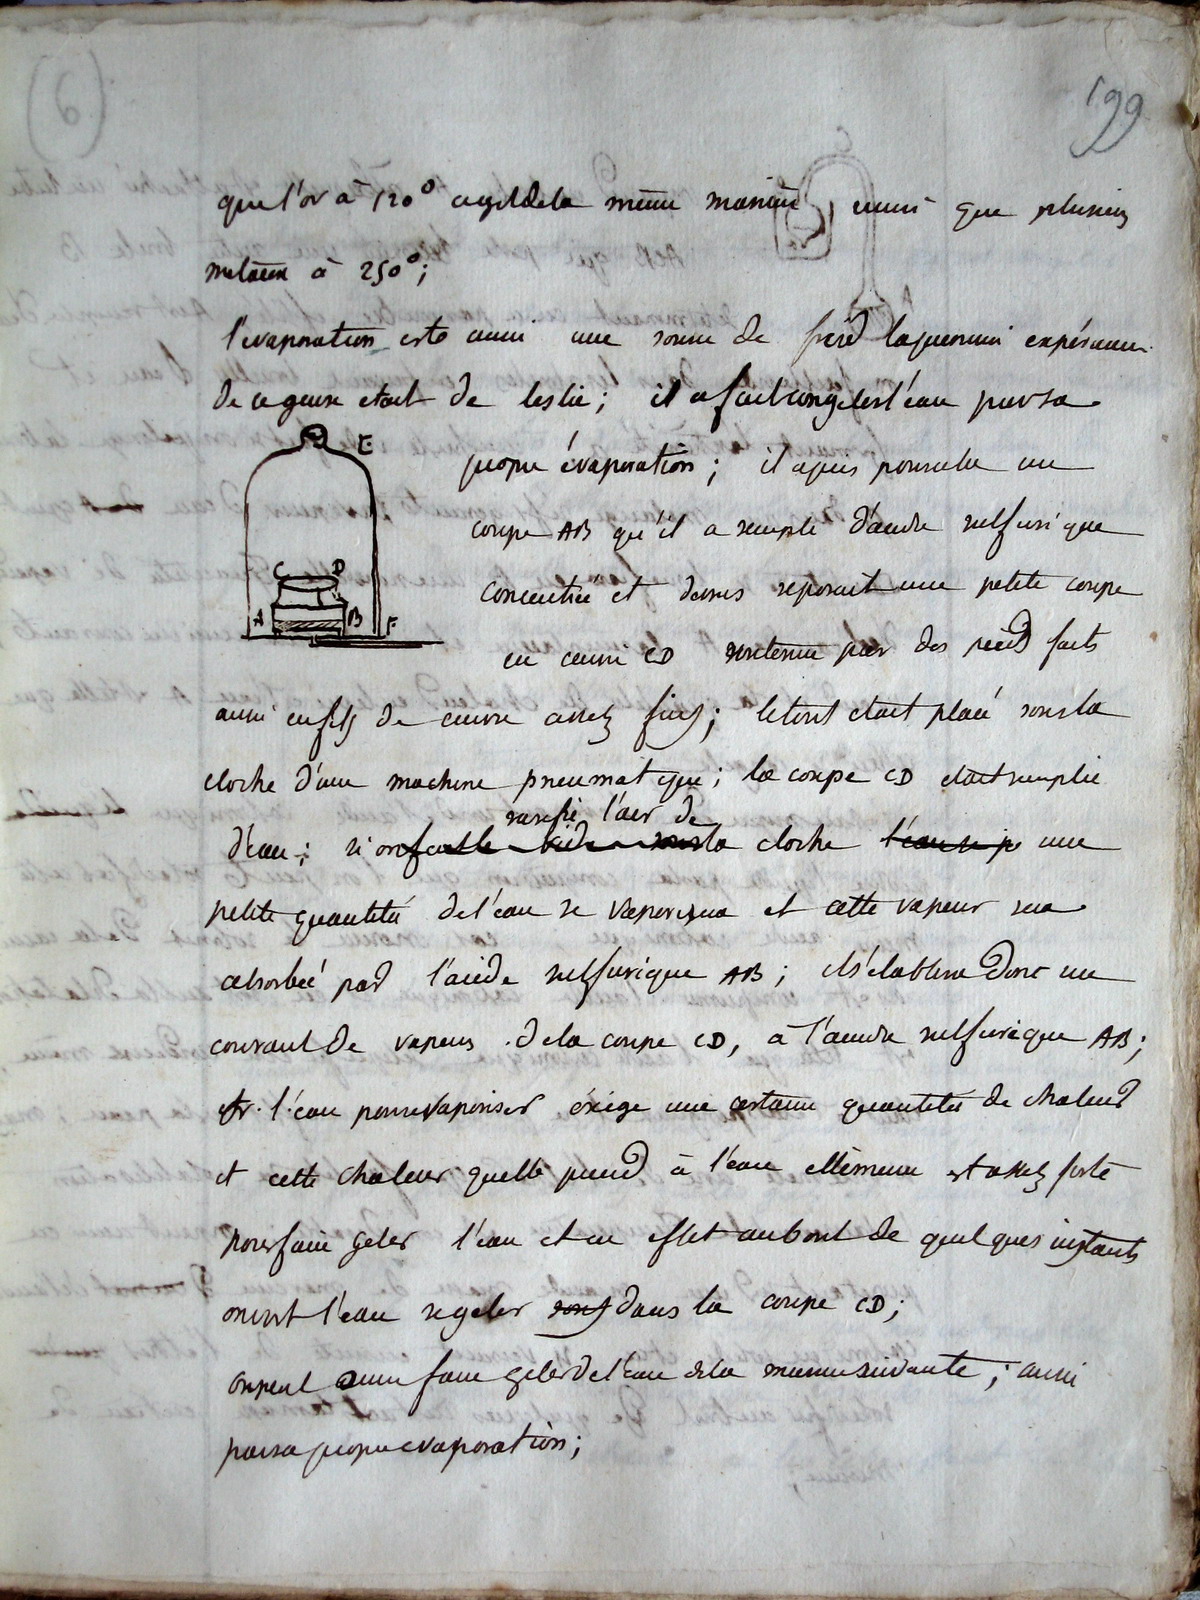 199
que l'or à 120° agit de la même manière ainsi que plusieurs
métaux à 250°;
l'evaporation est aussi une source de froid la premiere expérience
de ce genre etait de leslie; il a fait congeler l'eau par sa
propre évaporation; il a pris pour cela une
coupe AB qu'il a remplie d'acide sulfurique
concentrée et dessus reposait une petite coupe
en cuivre CD soutenue par des pieds faits
aussi en fils de cuivre assez fins; le tout etait placé sous la
cloche d'une machine pneumatique; la coupe CD etait remplie
rarefie l'air de
d'eau; si on fait le vide sous la cloche l'eau se p une
petite quantité de l'eau se vaporisera et cette vapeur sera
absorbée par l'acide sulfurique AB; il s'etablira donc un
courant de vapeurs de la coupe CD, a l'acide sulfurique AB;
or l'eau pour se vaporiser éxige une certaine quantité de chaleur
et cette chaleur quelle prend à l'eau ellemême est assez forte
pour faire geler l'eau et en effet au bout de quelques instants
on voit l'eau se geler sous dans la coupe CD;
on peut aussi faire geler de l'eau de la maniere suivante; aussi
par sa propre evaporation;
C D
E
A B F